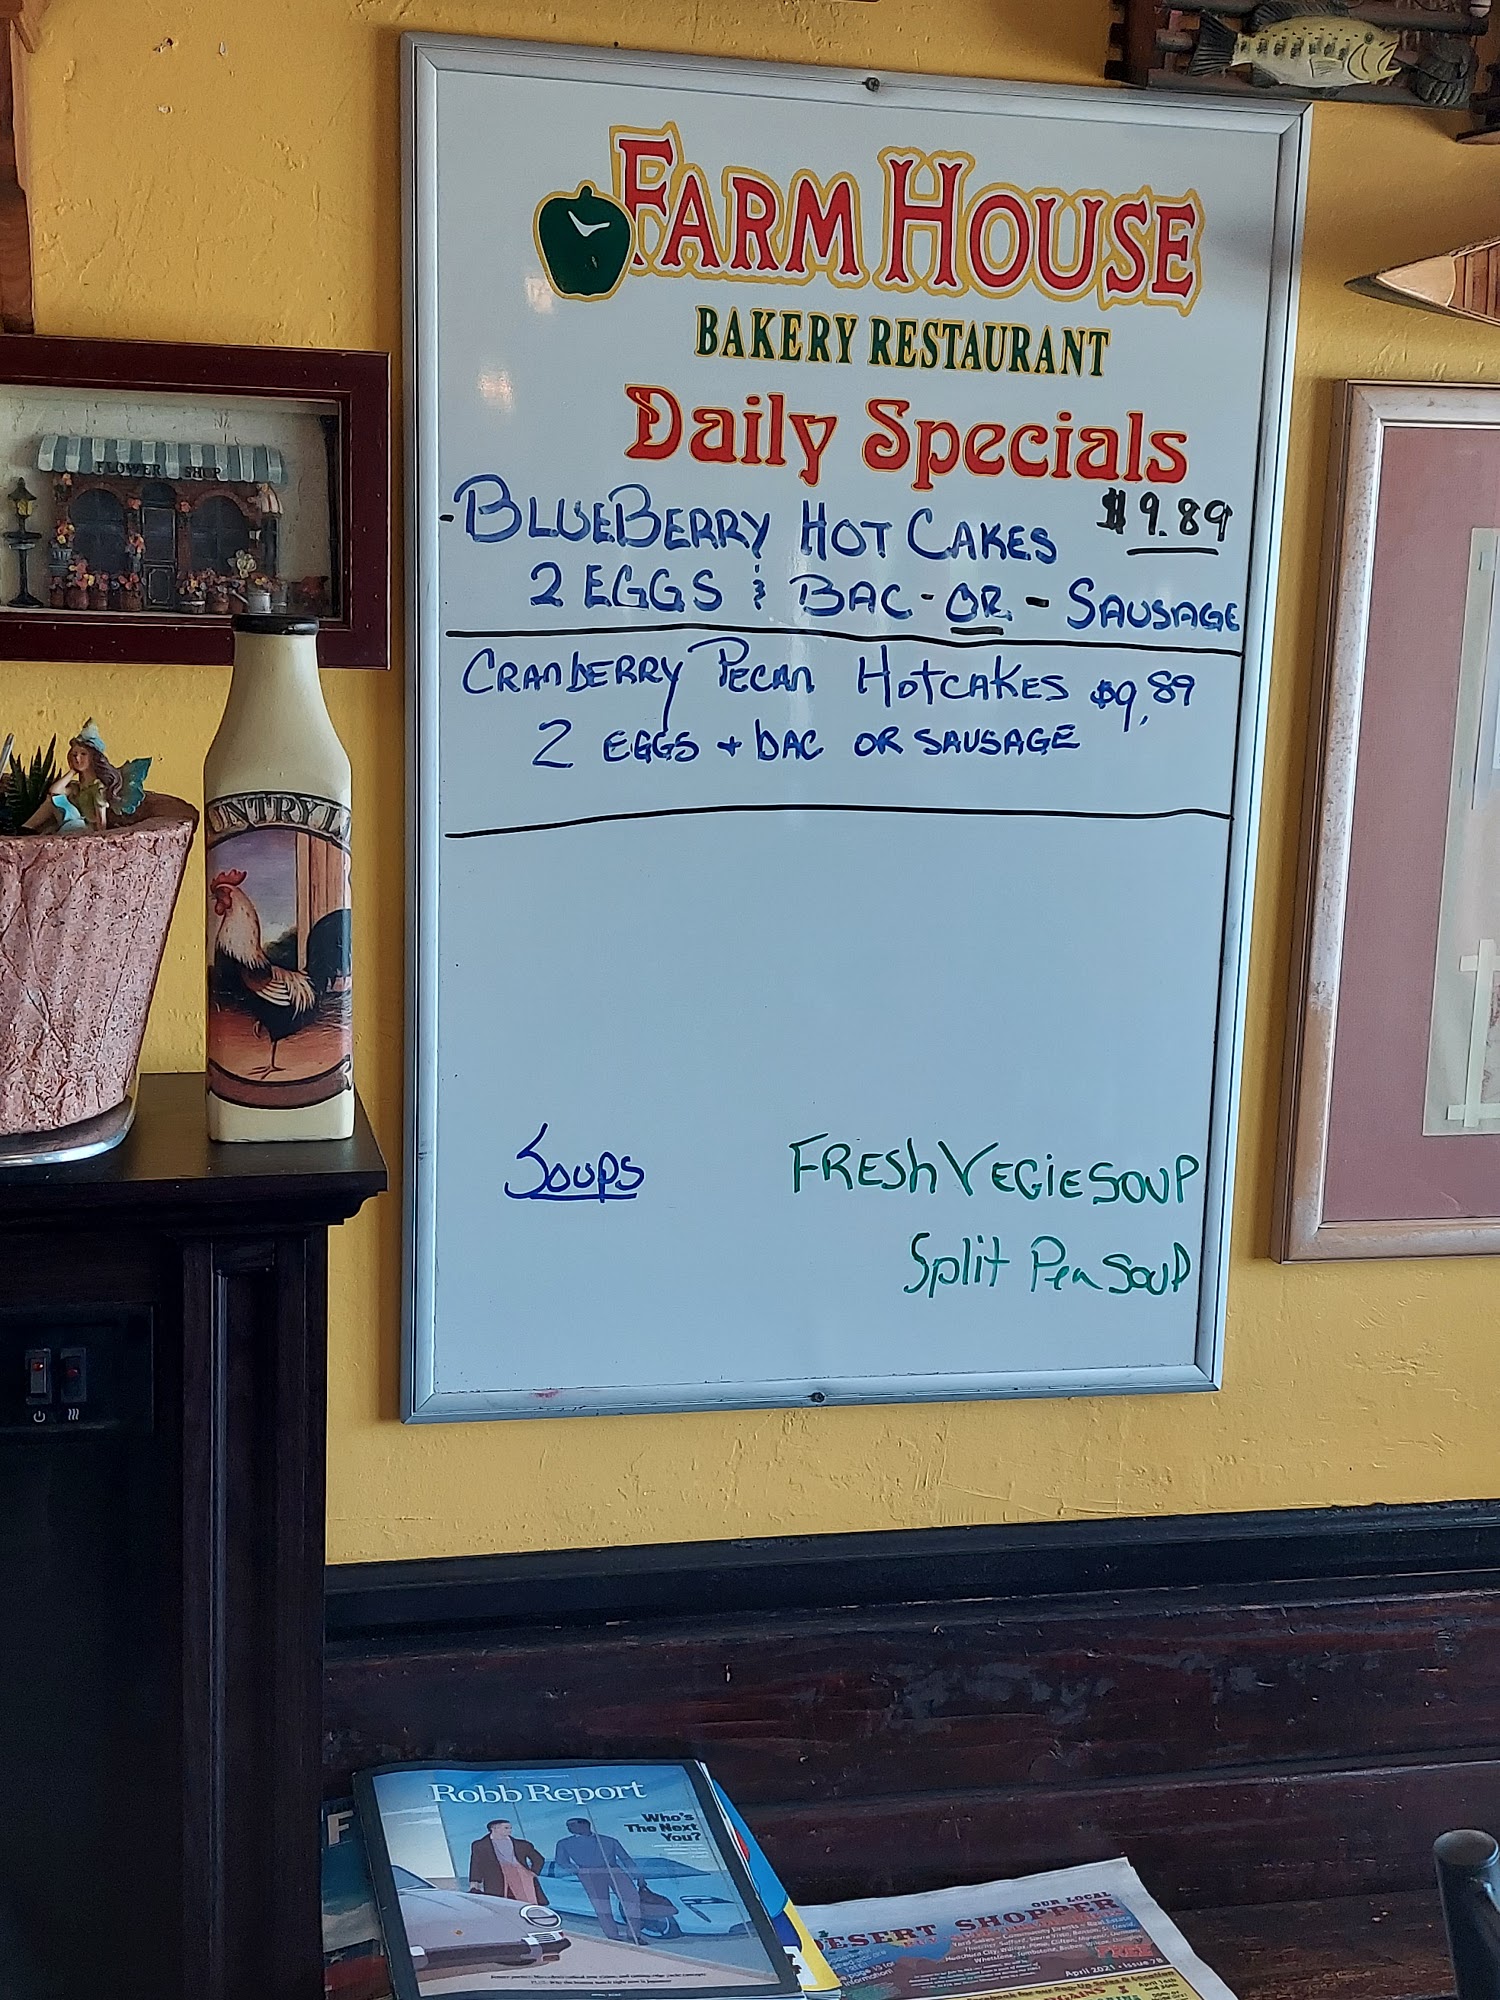 FARM HOUSE
BAKERY RESTAURANT
Daily Specials
-BLUEBERRY HOT CAKES $9.89
2 EGGS & BAC - OR - SAUSAGE
CRANBERRY PECAN HOTCAKES $9.89
2 EGGS + BAC OR SAUSAGE
Soups FRESH VEGIE SOUP
Split Pea SOUP
FLOWER SHOP
UNTRY
Robb Report
Who's
The Next
You?
F
OUR LOCAL
DESERT SHOPPER
FREE
April 2021 • Issue 78